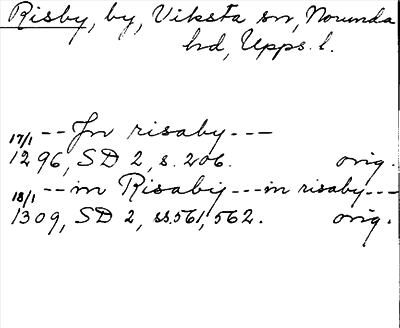 Risby, by, Viksta sn, Norunda
hd, Upps. l.
17/1 -- Jn risaby ---
1296, SD 2, s. 206. orig.
18/1 -- in Risabij --- in risaby ---
1309, SD 2, ss. 561, 562. orig.